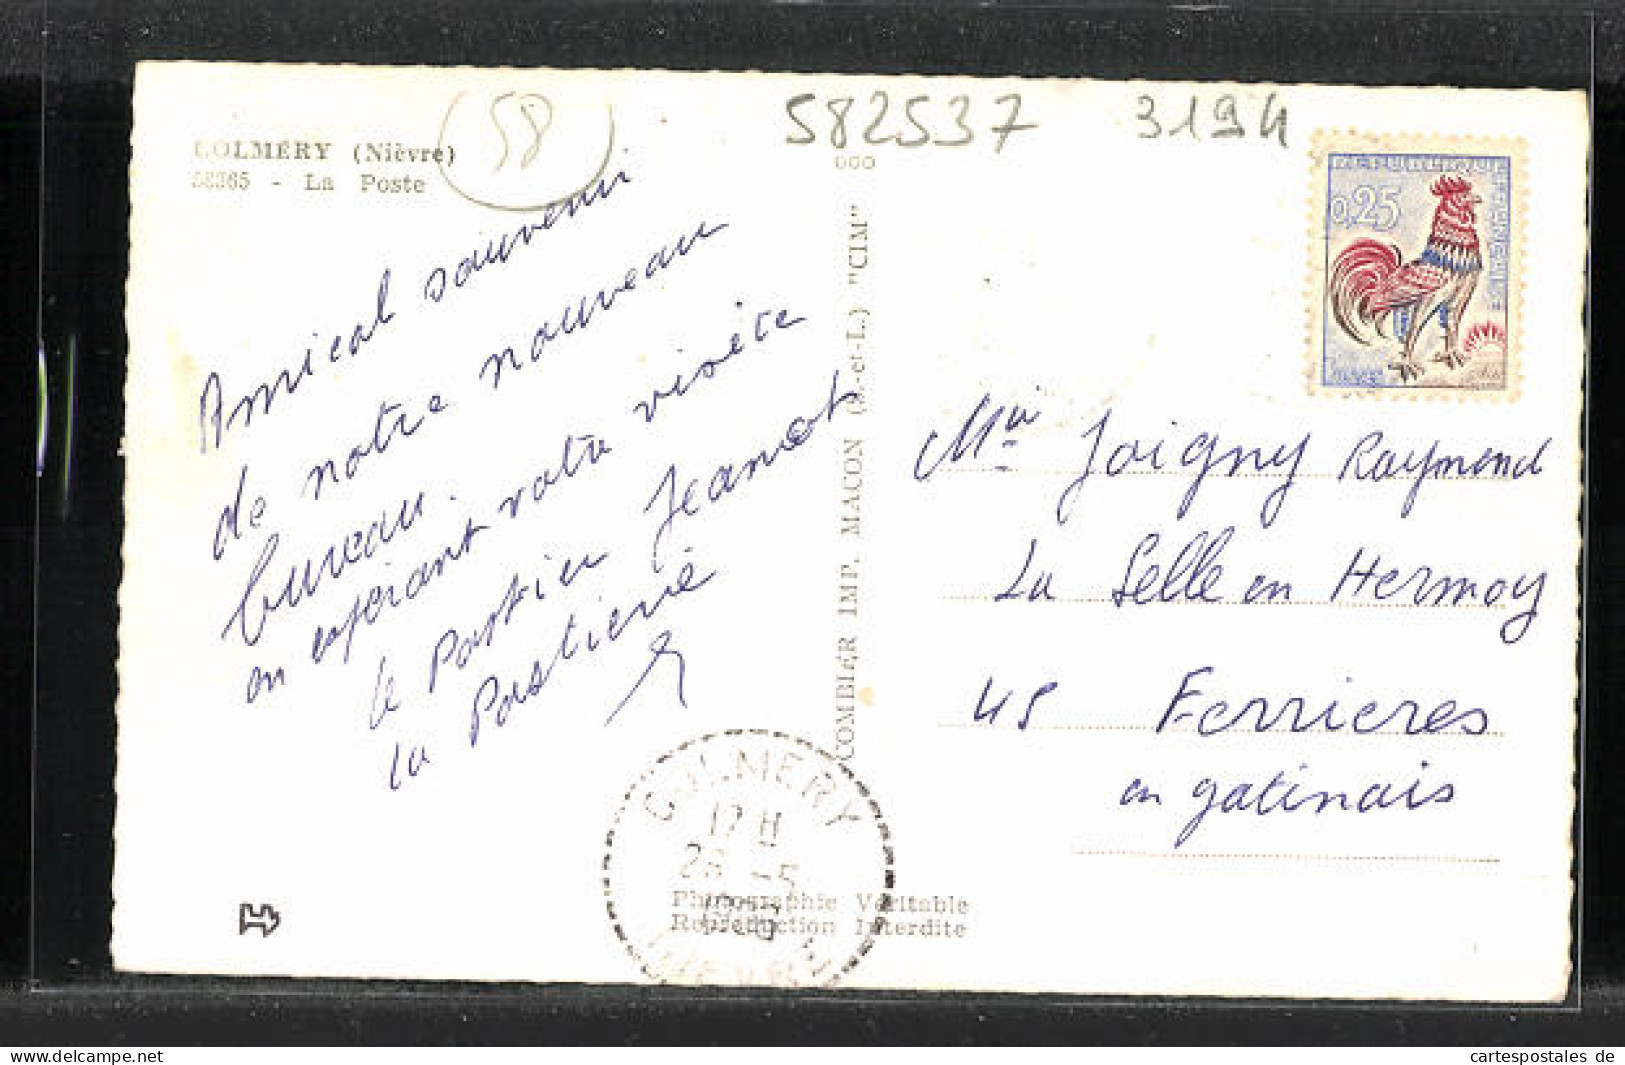 COLMERY (Nièvre)
58365 - La Poste
58
582537 3194
000
Amical souvenir
de notre nouveau
bureau.
en espérant votre visite
le Postier Jeanot
la Postière
COMBIER IMP. MACON (S.-et-L.) "CIM"
REPUBLIQUE FRANÇAISE
0,25
POSTES
Joigny Raymond
La Selle en Hermoy
45 Ferrieres
en gatinais
COLMERY
17 H
28 -5
NIEVRE
Photographie Véritable
Reproduction Interdite
delcampe.net
cartespostales de